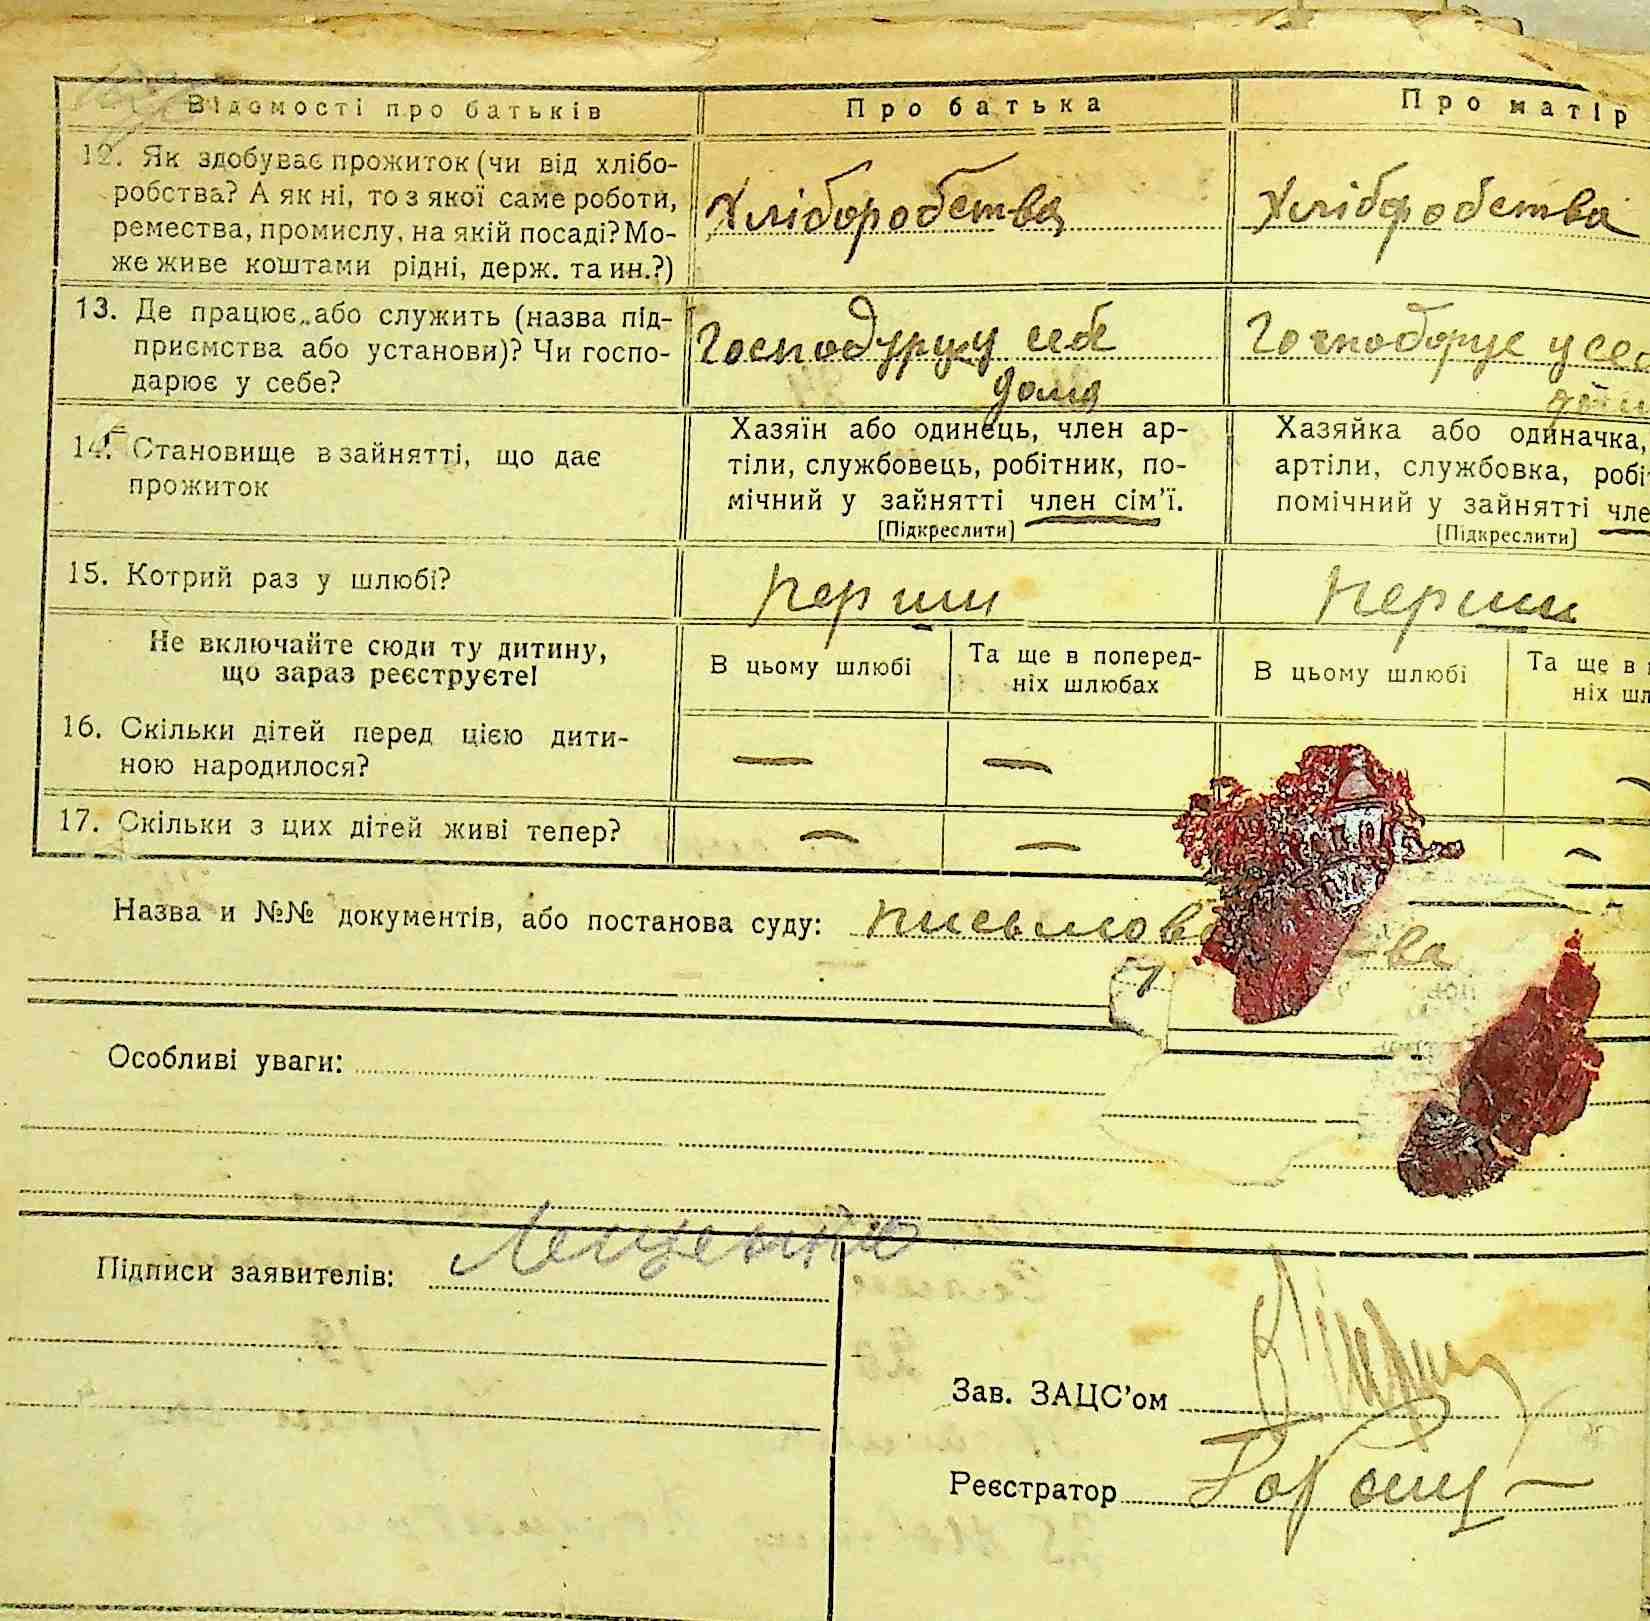 Відомості про батьків Про батька Про матір
12. Як здобуває прожиток (чи від хлібо-
робства? А як ні, то з якої саме роботи,
ремества, промислу, на якій посаді? Мо-
же живе коштами рідні, держ. та ин.?)
Хліборобства Хліборобства
13. Де працює, або служить (назва під-
приємства або установи)? Чи госпо-
дарює у себе?
Господарує у себе
дома
Господорує у себе
14. Становище в зайнятті, що дає
прожиток
Хазяїн або одинець, член ар-
тіли, службовець, робітник, по-
мічний у зайнятті член сім'ї.
[Підкреслити]
Хазяйка або одиначка,
артіли, службовка, робі
помічний у зайнятті чле
[Підкреслити]
15. Котрий раз у шлюбі? перши перши
Не включайте сюди ту дитину,
що зараз реєструєте!
В цьому шлюбі
Та ще в поперед-
ніх шлюбах
В цьому шлюбі
Та ще в
ніх шл
16. Скільки дітей перед цією дити-
ною народилося?
— —
17. Скільки з цих дітей живі тепер?
— — —
Назва и №№ документів, або постанова суду: письмова
Особливі уваги:
Підписи заявителів: Лещенко
Зав. ЗАЦС'ом
Реєстратор